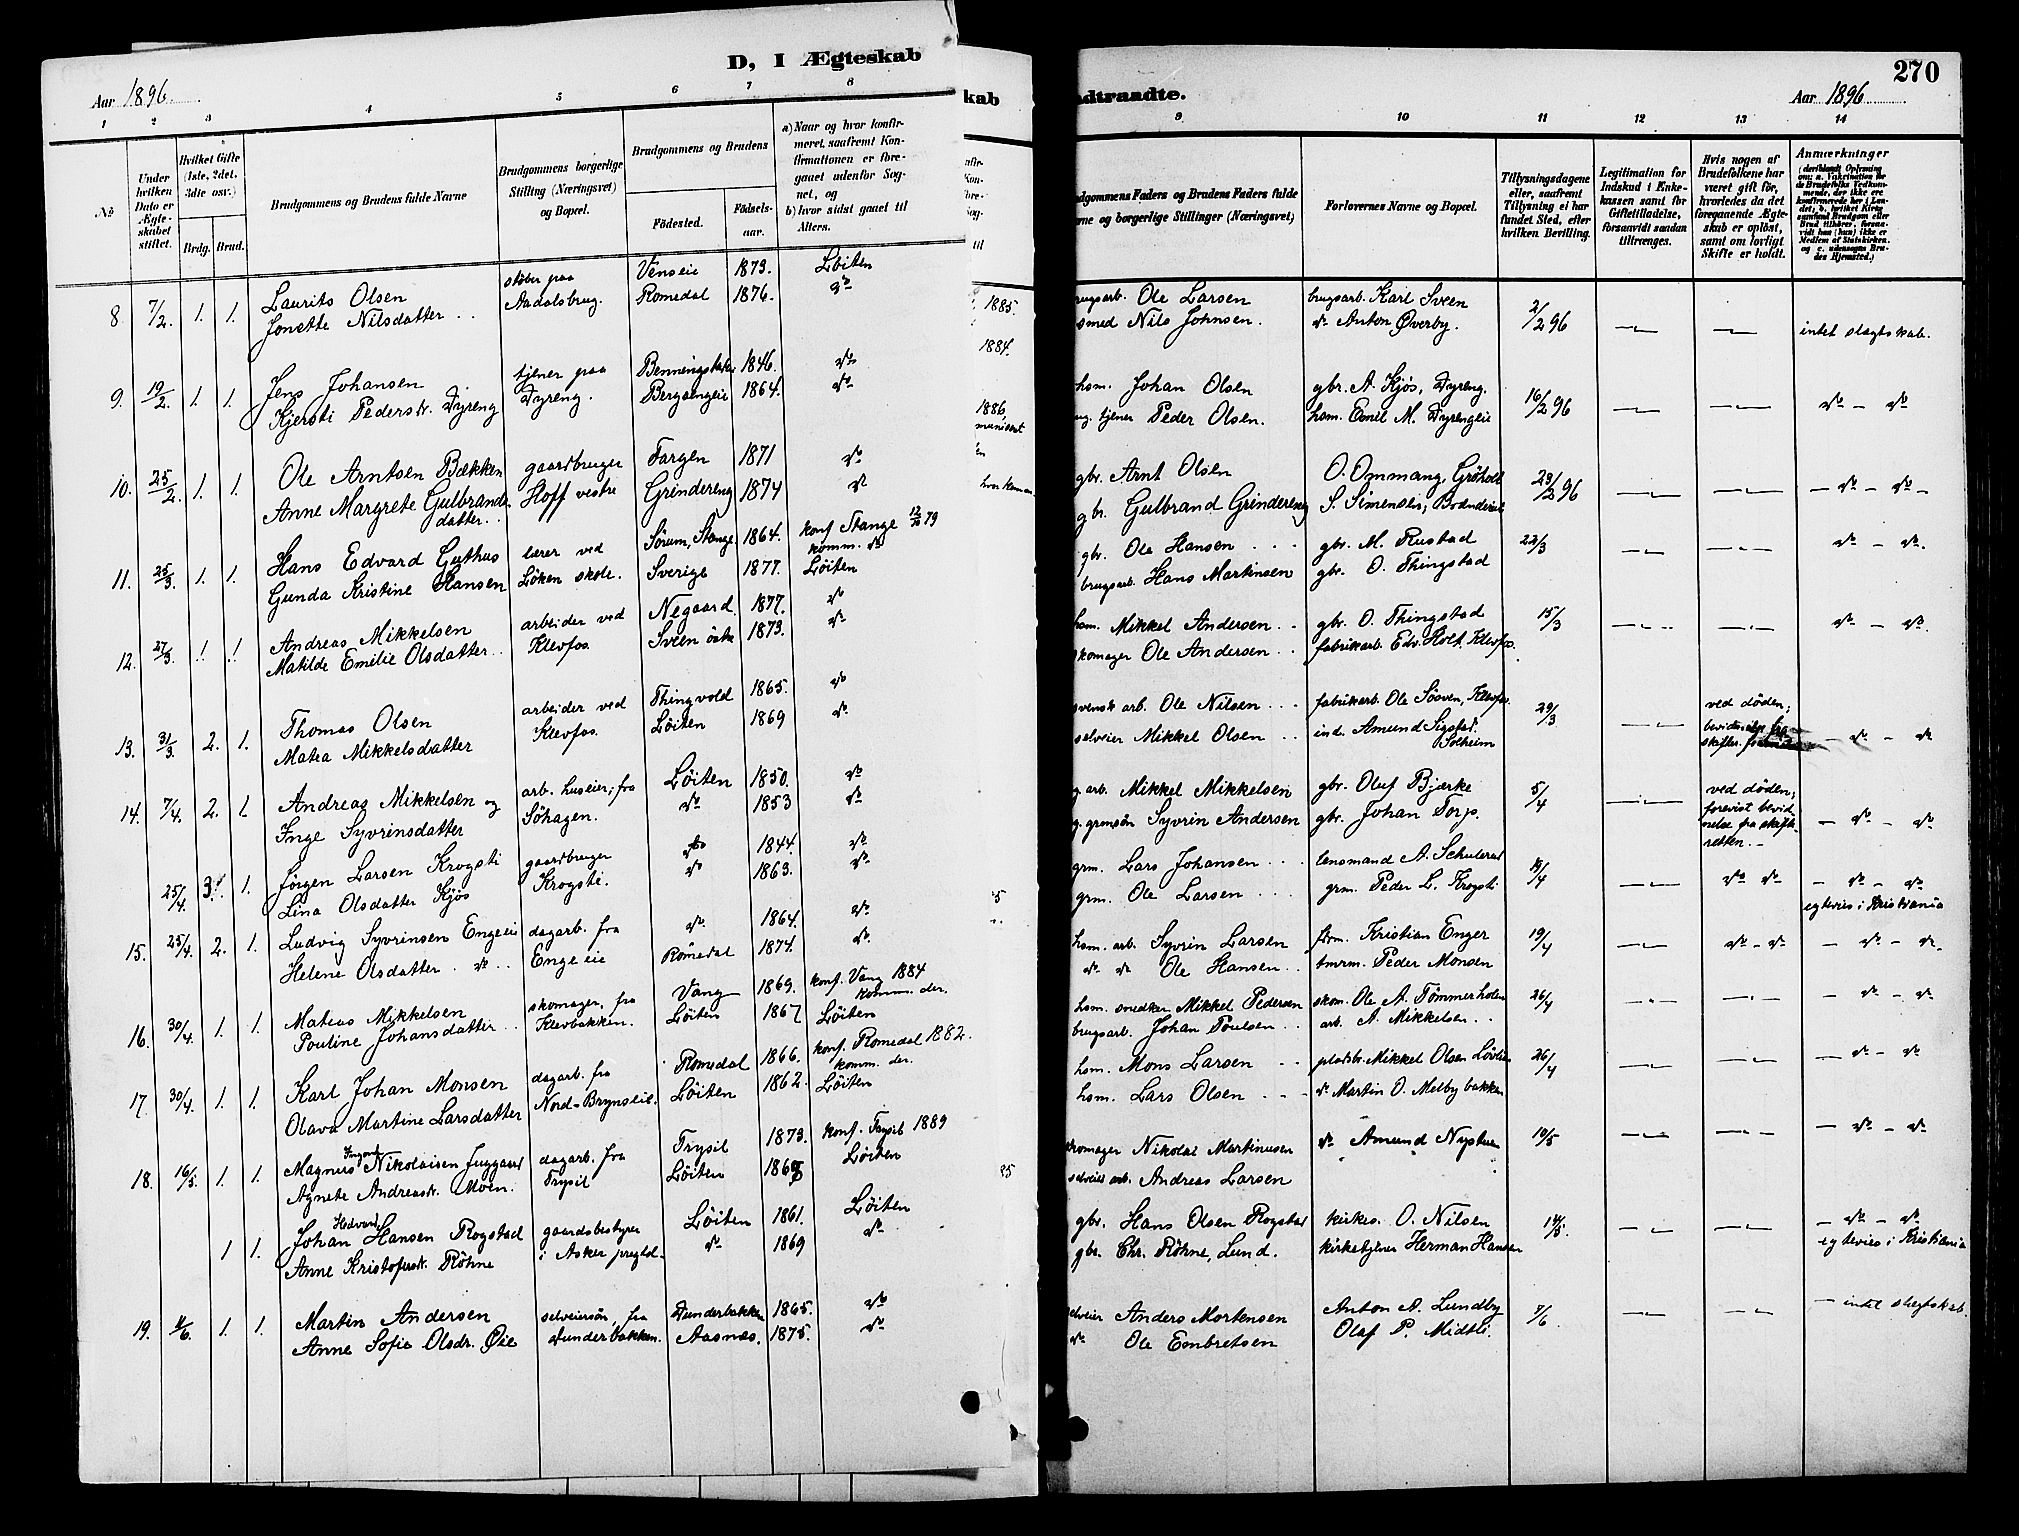 D, I Ægteskab
Aar 1896
1 2 3 4 5 6 7 8
№
Under hvilken Dato er Ægteskabet stiftet.
Hvilket Gifte (1ste, 2det, 3die osv.).
Brdg. Brud.
Brudgommens og Brudens fulde Navne
Brudgommens borgerlige Stilling (Næringsvei) og Bopæl.
Brudgommens og Brudens
Fødested. Fødselsaar.
a) Naar og hvor konfirmeret, saafremt Konfirmationen er foregaaet udenfor Sognet, og
b) hvor sidst gaaet til Alters.
8. 7/2. 1. 1. Laurits Olsen støber paa Venseie 1873. Løiten
Jonette Nilsdatter Aadalsbrug. Romedal 1876. do
9. 19/2. 1. 1. Jens Johansen tjener paa 1846. do
Kjersti Pedersdr. Dyreng Dyreng. Bergsengeie 1864. do
10. 25/2. 1. 1. Ole Arntsen Bækken gaardbruger Fargen 1871 do
Anne Margrete Gulbrandsdatter Hoff vestre Grindereng 1874 do
11. 25/3. 1. 1. Hans Edvard Gythus lærer ved Sørum, Stange 1864. konf. Stange 12/10 79 komm. do
Gunda Kristine Hansen Løken skole. Sverige 1877. Løiten
12. 27/3. 1. 1. Andreas Mikkelsen arbeider ved Negaard 1877. do
Matilde Emilie Olsdatter Klevfos. Sveen østre 1873. do
13. 31/3. 2. 1. Thomas Olsen arbeider ved Thingvold 1865. do
Matea Mikkelsdatter Klevfos. Løiten 1869 do
14. 7/4. 2. 1. Andreas Mikkelsen og arb. huseier, fra Løiten 1850. do
Inge Syvrinsdatter Söhagen. do 1853 do
25/4. 3. 1. Jørgen Larsen Krogsti gaardbruger do 1844. do
Lina Olsdatter Kjös Krogsti. do 1863. do
15. 25/4. 2. 1. Ludvig Syvrinsen Engeeie dagarb. fra do 1864. do
Helene Olsdatter do Engeeie Römedal 1874. do
16. 30/4. 1. 1. Mateus Mikkelsen skomager, fra Vang 1869. konf. Vang 1884 komm. der.
Pouline Johansdatter Klevbakken. Løiten 1867 Løiten
17. 30/4. 1. 1. Karl Johan Monsen dagarb. fra Romedal 1866. konf. Romedal 1882. komm. der.
Olava Martine Larsdatter Nord-Brynseie. Løiten 1862. Løiten
18. 16/5. 1. 1. Magnus Nikolaisen Juggaard dagarb. fra Trysil 1873. konf. Trysil 1889
Agnete Andreasdr. Moen. Trysil Løiten Løiten
1 1. Johan Hedvard Hansen Rogstad gaardsbestyrer Løiten 1861. Løiten
Anne Kristofersdr. Röhne i Asker prgld. do 1869 do
19. 4/6. 1. 1. Martin Andersen selveiersön, fra Dunderbakken 1865. do
Anne Sofie Olsdr. Øie Dunderbakken. Aasnæs. 1875. do
kab
1885.
1884.
1886,
5
85
ndtraadte.
270
Aar 1896
9 10 11 12 13 14
Brudgommens Faders og Brudens Faders fulde Navne og borgerlige Stillinger (Næringsvei)
Forlovernes Navne og Bopæl.
Tillysningsdagene eller, saafremt Tillysning ei har fundet Sted, efter hvilken Bevilling.
Legitimation for Indskud i Enkekassen samt for Giftetilladelse, forsaavidt saadan tiltrænges.
Hvis nogen af Brudefolkene har været gift før, hvorledes da det foregaaende Ægteskab er opløst, samt om lovligt Skifte er holdt.
Anmærkninger
brugsarb. Ole Larsen brugsarb. Karl Sveen 2/2 96
smed Nils Johnsen. do Anton Øverby. intet slægtskab.
hsm. Johan Olsen gbr. A. Kjøs, Dyreng. 16/2 96
ug. tjener Peder Olsen. hsm. Emil M. Dyrengeie do - do
gbr. Arnt Olsen O. Ommang, Gröholt 23/2 96
gbr. Gulbrand Grindereng S. Simensen, - do - do -
gbr. Ole Hansen gbr. M. Rustad 22/3 do - do.
brugsarb. Hans Martinsen gbr. O. Thingstad
hsm. Mikkel Andersen gbr. O. Thingstad 15/3 do - do
skomager Ole Andersen fabrikarb. Edv. Holt, Klevfos
svensk arb. Ole Nilsen fabrikarb. Ole Klevfos 29/3 ved døden;
selveier Mikkel Olsen ind. Amund Sigstad, Solheim - do - do
g. arb. Mikkel Mikkelsen gbr. Oluf Bjerke 5/4 ved døden; forevist bevidnelse fra skifteretten.
g. grmsön Syvrin Andersen gbr. Johan Torp. - do - do
grm. Lars Johansen lensmand A. Schulerud /4 do do - do - do
grm. Ole Larsen grm. Peder L. Krogsti egtevies i Kristiania
hsm. arb. Syvrin Larsen Kristian Enger 19/4 do - do - do - do
do do Ole Hansen tmrm. Peder Monsen
hsm. snedker Mikkel Pedersen skom. Ole A. Tømmerholen 26/4 - do - do
brugsarb. Johan Poulsen arb. A. Mikkelsen
hsm. Mons Larsen pladsbr. Mikkel Olsen 26/4 - do - do
hsm. Lars Olsen do Martin O. Melbybakken
skomager Nikolai Martinusen do Amund Nystuen 10/5 - do - do
selveier arb. Andreas Larsen
gbr. Hans Olsen Rogstad kirkes. O. Nilsen 14/5. - do - do
gbr. Chr. Röhne, Lund. kirketjener Herman Hansen egtevies i Kristiania
selveier Anders Mortensen Anton A. Lundby 7/6 - intet slegtskab
do Ole Embretsen Olaf P. Midtli.